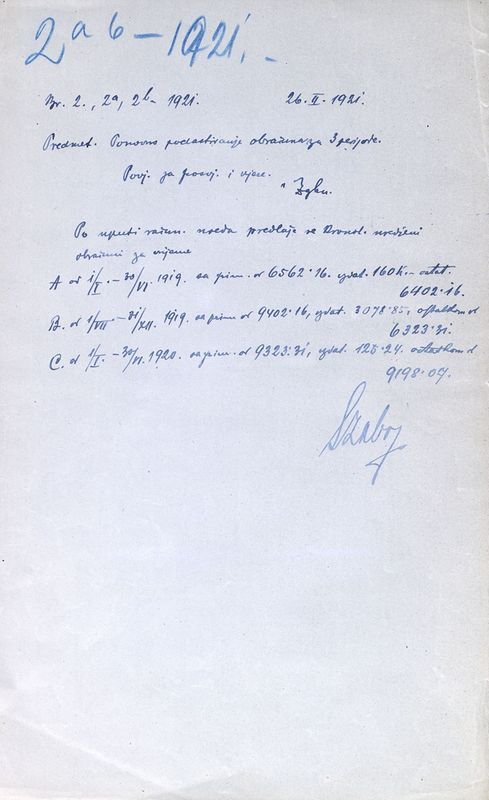 2a b – 1921.
Br. 2., 2a, 2b – 1921. 26. II. 1921.
Predmet. Ponovno podastiranje obračuna za 3 perijode.
Povj. za prosvj. i vjere.
Zgbu.
Po uputi račun. ureda predlaže se kronol. uredjeni
obračuni za vrijeme
A od 1/I. – 30/VI. 1919. sa prim. od 6562·16. izdat. 160 k. – ostat.
6402·16.
B. od 1/VII – 31/XII. 1919. sa prim od 9402·16, izdat. 3078·85, ostatkom od
6323·31.
C. od 1/I. – 30/VI. 1920. sa prim. od 9323·31, izdat. 125·24. ostatkom od
9198·07.
Szaboj